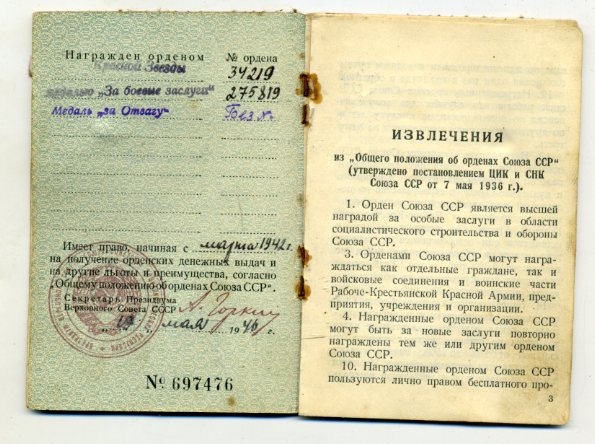 Награжден орденом № ордена
Красной Звезды 34219
медалью „За боевые заслуги“ 275819
Медаль „за Отвагу“ Без №
Имеет право, начиная с марта 1942 г.
на получение орденских денежных выдач и
на другие льготы и преимущества, согласно
„Общему положению об орденах Союза ССР“.
Секретарь Президиума
Верховного Совета СССР А. Горкин
мая 1946 г.
№ 697476
ИЗВЛЕЧЕНИЯ
из „Общего положения об орденах Союза ССР“
(утверждено постановлением ЦИК и СНК
Союза ССР от 7 мая 1936 г.).
1. Орден Союза ССР является высшей
наградой за особые заслуги в области
социалистического строительства и обороны
Союза ССР.
3. Орденами Союза ССР могут награ-
ждаться как отдельные граждане, так и
войсковые соединения и воинские части
Рабоче-Крестьянской Красной Армии, пред-
приятия, учреждения и организации.
4. Награжденные орденом Союза ССР
могут быть за новые заслуги повторно
награждены тем же или другим орденом
Союза ССР.
10. Награжденные орденом Союза ССР
пользуются лично правом бесплатного про-
3